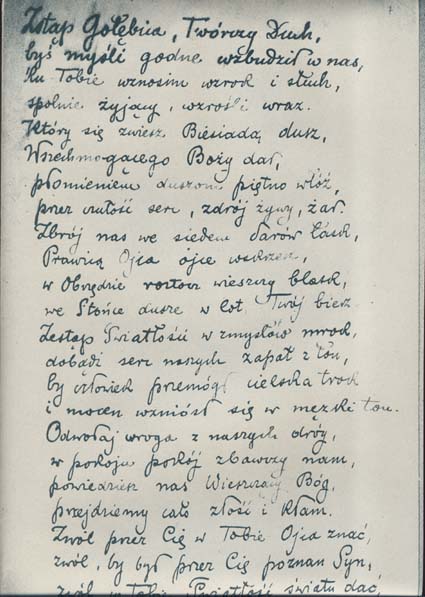 Zstąp Gołębica, Twórczy Duch,
byś myśli godne wzbudził w nas,
ku Tobie wznosim wzrok i słuch,
spólnie żyjący, wzrośli wraz.
Który się zwiesz Biesiadą dusz,
Wszechmogącego Boży dar,
płomieniem duszom piętno włóż,
przez czułość serc, zdrój żywy, żar.
Zbrój nas we siedem darów łask,
Prawicą Ojca ojce wskrześ,
w Obrędzie roztocz wieszczy blask,
we Słońce dusze w lot Twój bierz.
Zestąp Światłości w zmysłów mrok,
dobądź serc naszych zapał z łon,
by człowiek przemógł cielska trok
i mocen wzniósł się w męzki ton.
Odwołaj wroga z naszych dróg,
w pokoju pokój zbawczy nam,
powiedziesz nas Wieszczący Bóg,
przejdziemy cało złość i kłam.
Zwól przez Cię w Tobie Ojca znać,
zwól, by był przez Cię poznan Syn,
zwól w Tobie Światłość światu dać,